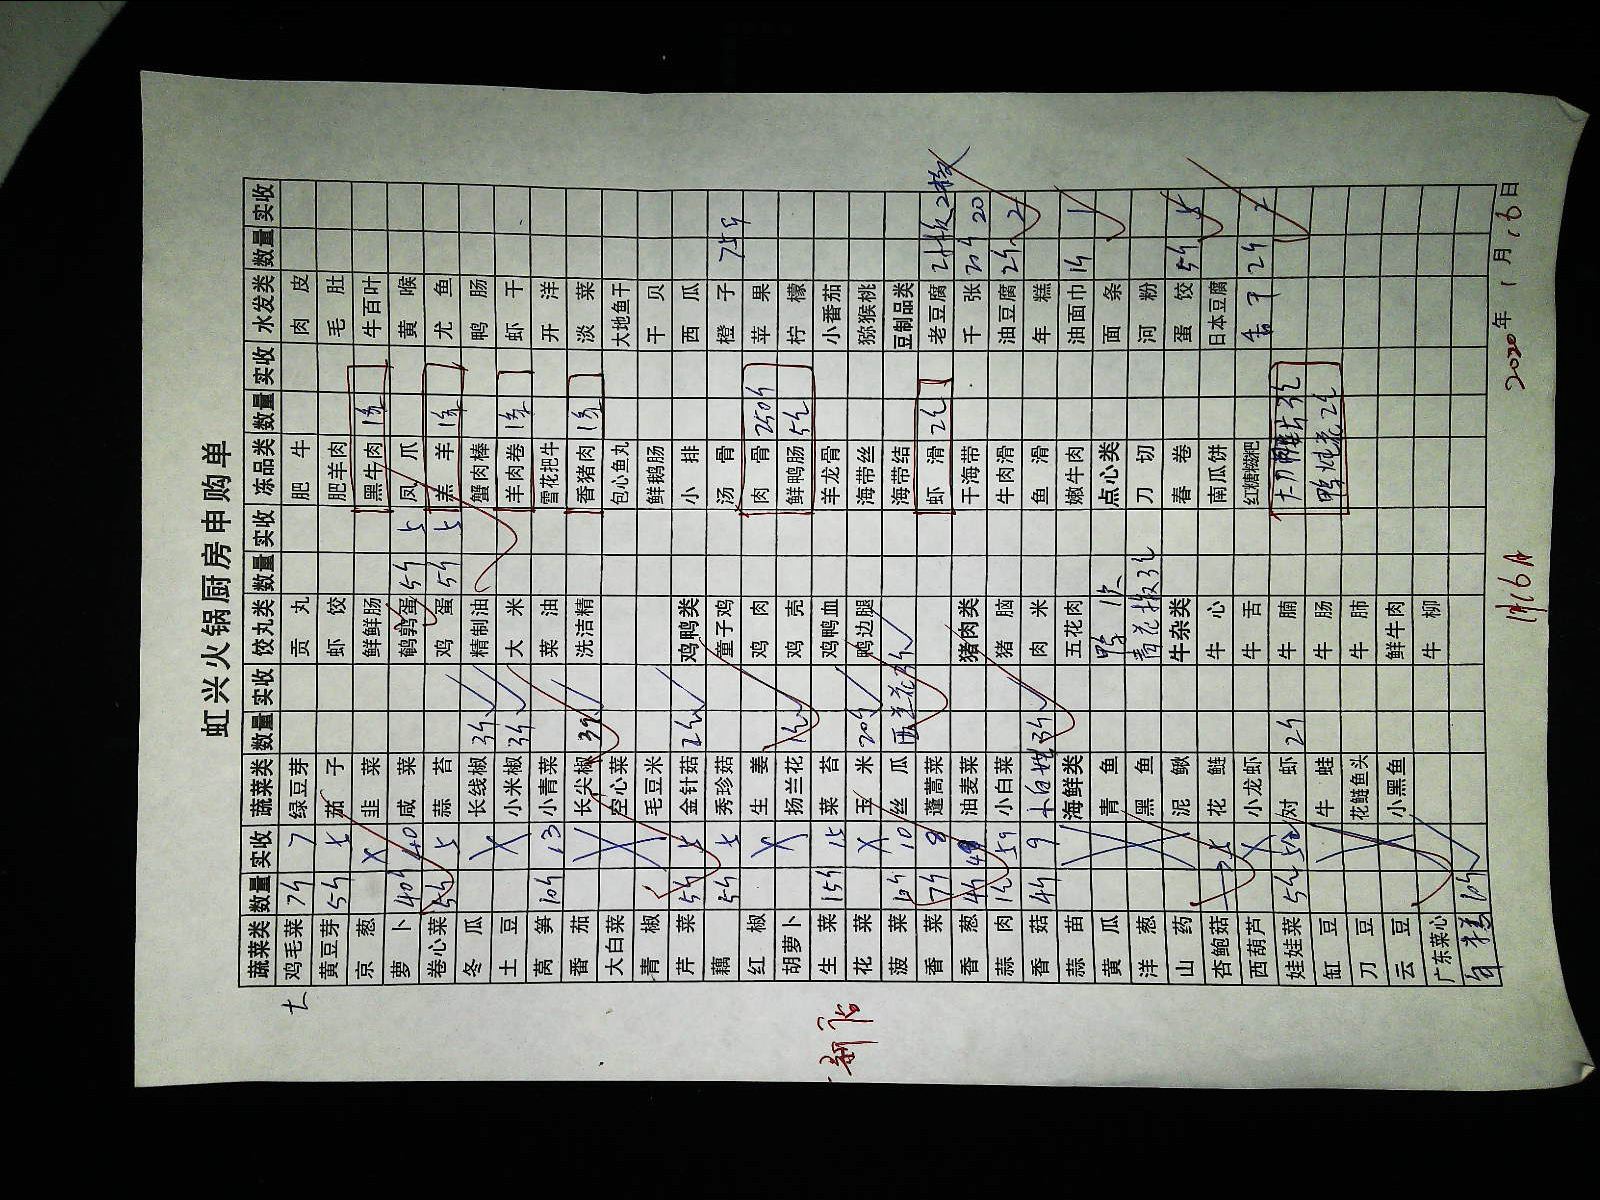 虹兴火锅厨房申购单
蔬菜类 数量 实收 蔬菜类 数量 实收 饺丸类 数量 实收 冻品类 数量 实收 水发类 数量 实收
鸡毛菜 7斤 7 绿豆芽 贡丸 肥牛 肉皮
黄豆芽 5斤 5 茄子 虾饺 肥羊肉 毛肚
京葱 X 韭菜 鲜鲜肠 黑牛肉 1条 牛百叶
萝卜 40斤 40 咸菜 鹌鹑蛋 5斤 5 凤爪 黄喉
卷心菜 5斤 5 蒜苔 鸡蛋 5斤 5 羔羊 1条 尤鱼
冬瓜 长线椒 3斤 精制油 蟹肉棒 鸭肠
土豆 X 小米椒 3斤 大米 羊肉卷 1条 虾干
莴笋 10斤 13 小青菜 菜油 雪花把牛 开洋
番茄 长尖椒 3斤 洗洁精 香猪肉 1条 淡菜
大白菜 空心菜 包心鱼丸 大地鱼干
青椒 毛豆米 鲜鹅肠 干贝
芹菜 5斤 5 金针菇 2包 鸡鸭类 小排 西瓜
藕 5斤 5 秀珍菇 童子鸡 汤骨 橙子 75斤
红椒 X 生姜 鸡肉 肉骨 250斤 苹果
胡萝卜 扬兰花 1包 鸡壳 鲜鸭肠 5包 柠檬
生菜 15斤 15 菜苔 鸡鸭血 羊龙骨 小番茄
花菜 X 玉米 20斤 鸭边腿 海带丝 猕猴桃
菠菜 10斤 10 丝瓜 西兰花 3斤 海带结 豆制品类
香菜 7斤 8 蓬蒿菜 虾滑 2包 老豆腐 2板 2板
香葱 4斤 油麦菜 猪肉类 干海带 千张 20斤 20
蒜肉 小白菜 猪脑 牛肉滑 油豆腐 2斤 2
香菇 4斤 9 3斤 肉米 鱼滑 年糕
蒜苗 海鲜类 五花肉 嫩牛肉 油面巾 1斤 1
黄瓜 青鱼 点心类 面条
洋葱 黑鱼 3包 刀切 河粉
山药 泥鳅 牛杂类 春卷 蛋饺 5斤 5
杏鲍菇 花鲢 牛心 南瓜饼 日本豆腐
西葫芦 X 小龙虾 牛舌 红糖糍粑 香干 2斤 2
娃娃菜 5包 5包 对虾 2斤 牛腩 3包
缸豆 牛蛙 牛肠 2包
刀豆 花鲢鱼头 牛肺
云豆 小黑鱼 鲜牛肉
广东菜心 牛柳
10斤
2020年1月16日
1月16日